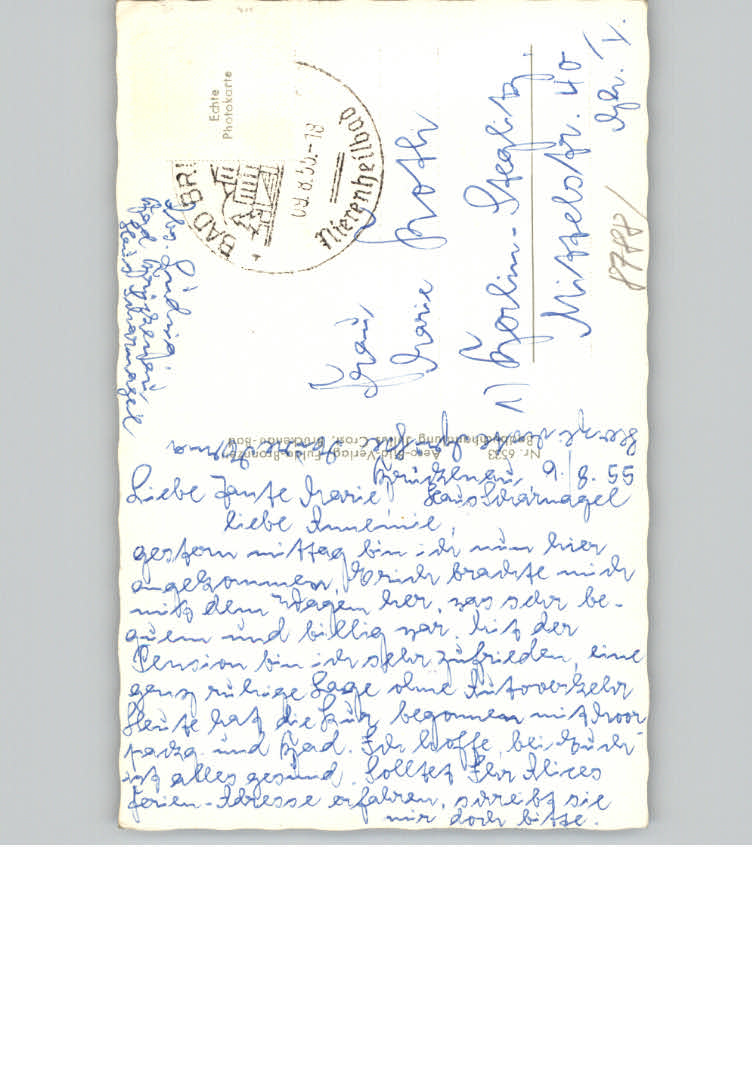 Echte
Photokarte
BAD BRÜ
09.8.55.-18
Nierenheilbad
Abs. Lüdwig.
Bad Brückenau
Haus Scharnagel
Frau
Marie Roth
1) Berlin-Steglitz
Mittelstr. 40
Gh. V.
8788/
Nr. 6533 Aero-Bild-Verlag, Fulda-Bronnzell
Badbuchhandlung Julius Cron, Brückenau-Bad
Herzlichst grüßt
Brückenau, 9./8. 55
Haus Scharnagel
Liebe Tante Marie
liebe Annemie,
gestern mittag bin ich nun hier
angekommen, Erich brachte mich
mit dem Wagen her, was sehr be-
quem und billig war. Mit der
Pension bin ich sehr zufrieden, eine
ganz ruhige Lage ohne Autoverkehr
Heute hat die Kur begonnen mit Moor
packg. und Bad. Ich hoffe, bei Euch
ist alles gesund. Solltet Ihr Alices
Ferien-Adresse erfahren, schreibt sie
mir doch bitte.